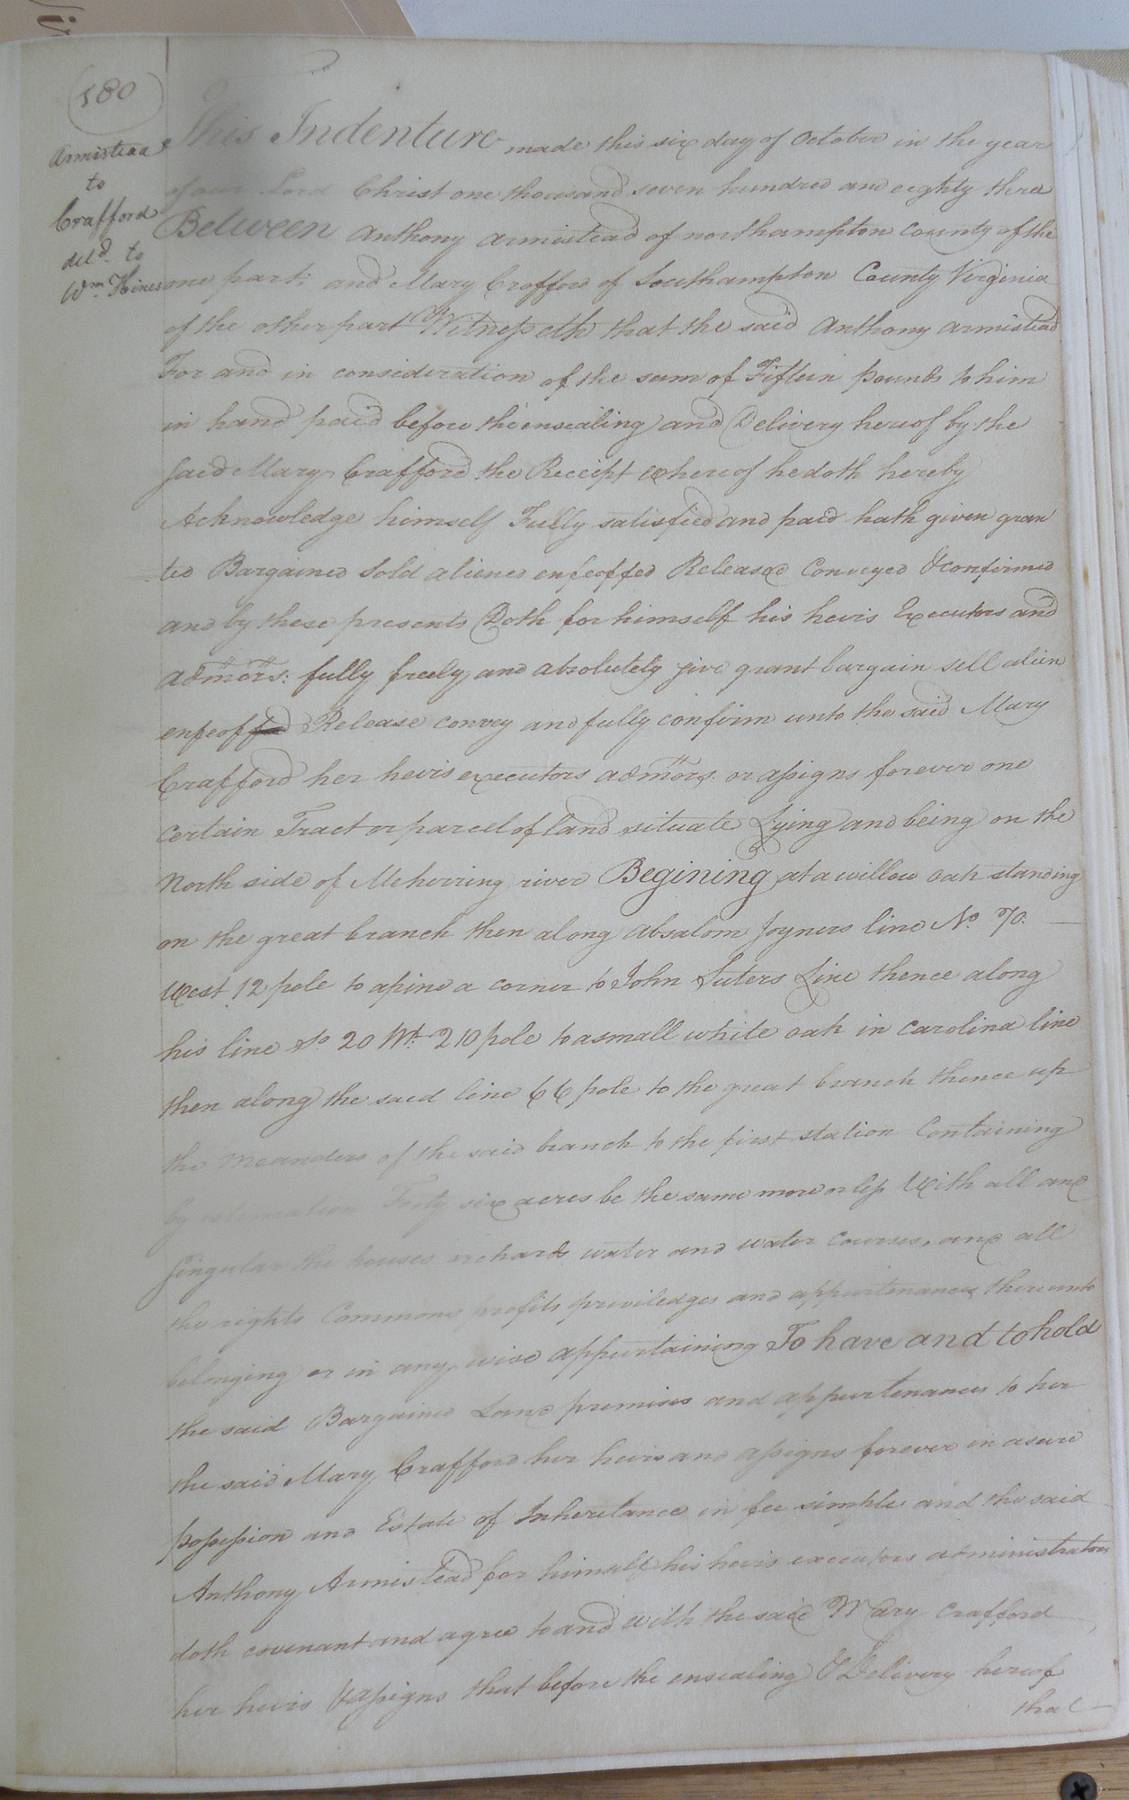 180
Armistead
to
Crafford
deld. to
Wm. Hines
This Indenture made this six day of October in the year
of our Lord Christ one thousand seven hundred and eighty three
Between Anthony Armistead of Northampton County of the
one part; and Mary Crafford of Southampton County Virginia
of the other part Witnesseth that the said Anthony Armistead
For and in consideration of the sum of Fifteen pounds to him
in hand paid before the ensealing and Delivery hereof by the
said Mary Crafford the Receipt whereof he doth hereby
Acknowledge himself Fully satisfied and paid hath given gran
ted Bargained Sold aliened enfeoffed Released Conveyed & confirmed
and by these presents Doth for himself his heirs Executors and
admors: fully freely and absolutely give grant bargain sell alien
enfeoff Release convey and fully confirm unto the said Mary
Crafford her heirs executors admors. or assigns forever one
certain Tract or parcel of land situate Lying and being on the
North side of Meherring river Begining at a willow oak standing
on the great branch then along Absalom Joyners line No. 70.
West 12 pole to a pine a corner to John Suters Line thence along
his line So. 20 Wt. 210 pole to a small white oak in Carolina line
then along the said line 66 pole to the great branch thence up
the meanders of the said branch to the first station Containing
by estimation Forty six acres be the same more or less With all and
singular the houses orchards water and water courses, and all
the rights Commons profits priviledges and appurtenances thereunto
belonging or in any wise appurtaining To have and to hold
the said Bargained Land premises and appurtenances to her
the said Mary Crafford her heirs and assigns forever in a sure
possession and Estate of Inheritance in fee simple and the said
Anthony Armistead for himself his heirs executors administrators
doth covenant and agree to and with the said Mary Crafford
her heirs & assigns that before the ensealing & Delivery hereof
that